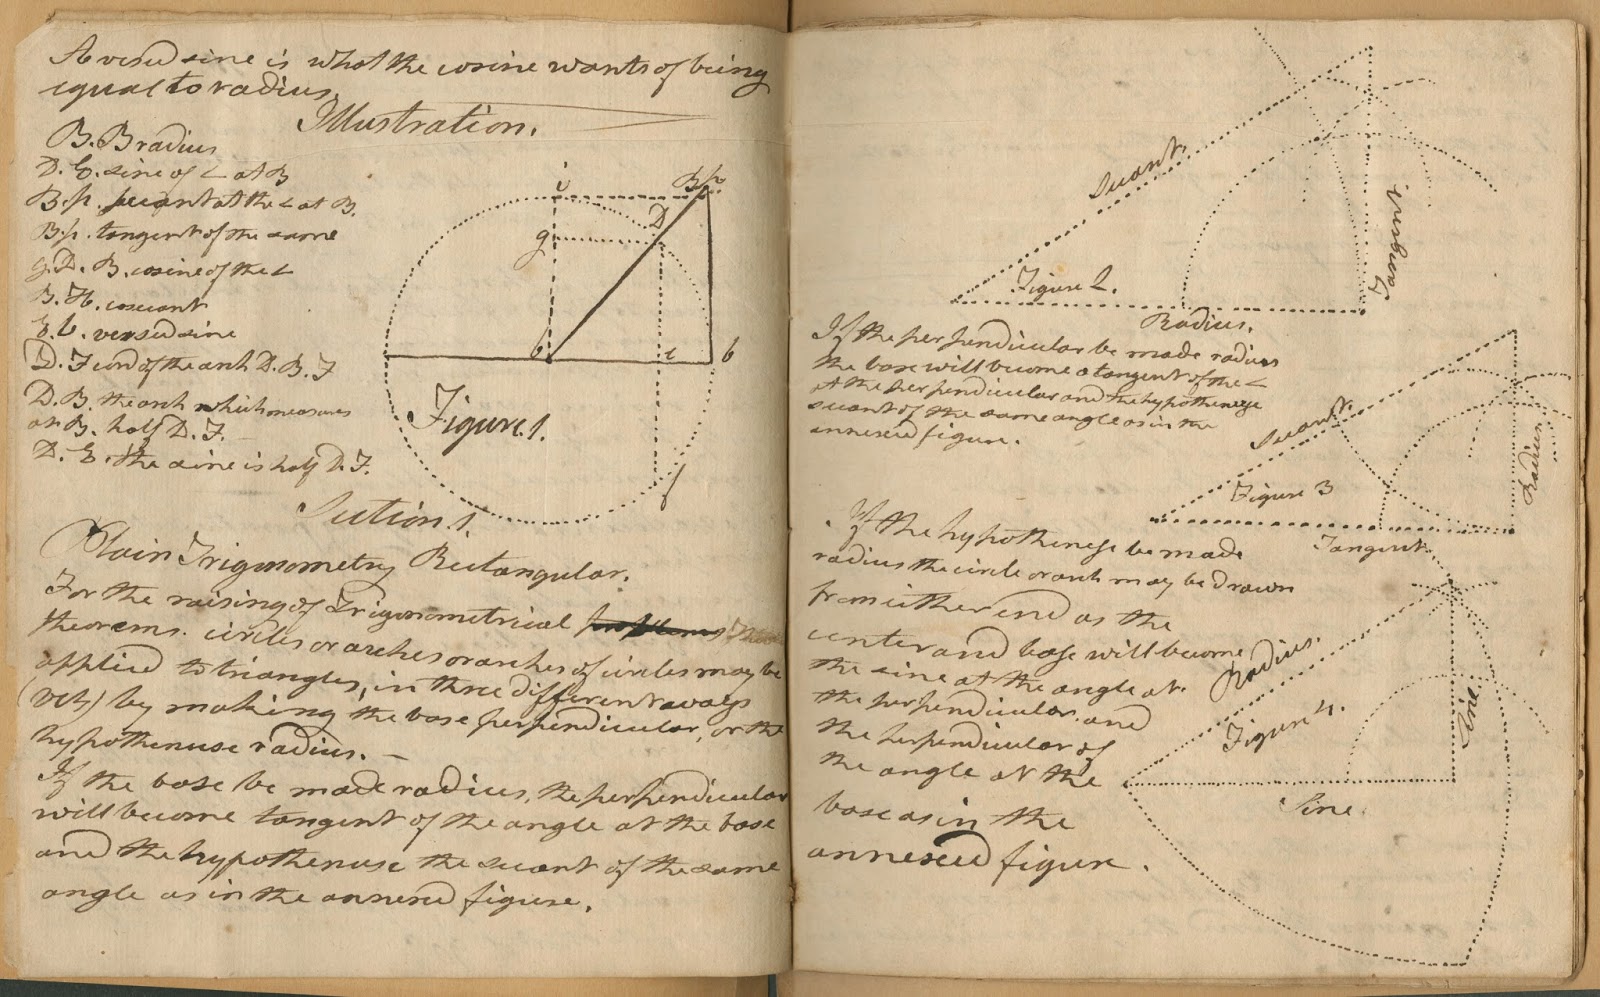 A versed sine is what the cosine wants of being
equal to radius.
Illustration.
B. B radius
D. E. sine of < at B
B. p. secant at the < at B.
B. p. tangent of the same
g. D. B. cosine of the <
B. H. cosecant
E. b. versed sine
D. F cord of the arch D. B. F
D. B. the arch which measures
at B. half D. F.
D. E. the sine is half D. F.
i
B
p
D
g
b
e
b
f
Figure 1.
Section 1.
Plain Trigonometry Rectangular.
For the raising of Trigonometrical problems
theorems. circles or arches or arches of circles may be
applied to triangles, in three different ways
(viz) by making the base perpendicular, or the
hypothenuse radius. —
If the base be made radius, the perpendicular
will become tangent of the angle at the base
and the hypothenuse the secant of the same
angle as in the annexed figure.
Secant.
Tangent.
Figure 2.
Radius.
If the perpendicular be made radius
the base will become a tangent of the <
at the perpendicular and the hypothenuse
secant of the same angle as in the
annexed figure.
Secant.
Radius
Figure 3
Tangent.
If the hypothenuse be made
radius the circle or arch may be drawn
from either end as the
center and base will become
the sine at the angle at
the perpendicular and
the perpendicular of
the angle at the
base as in the
annexed figure.
Radius.
Sine
Figure 4.
Sine.